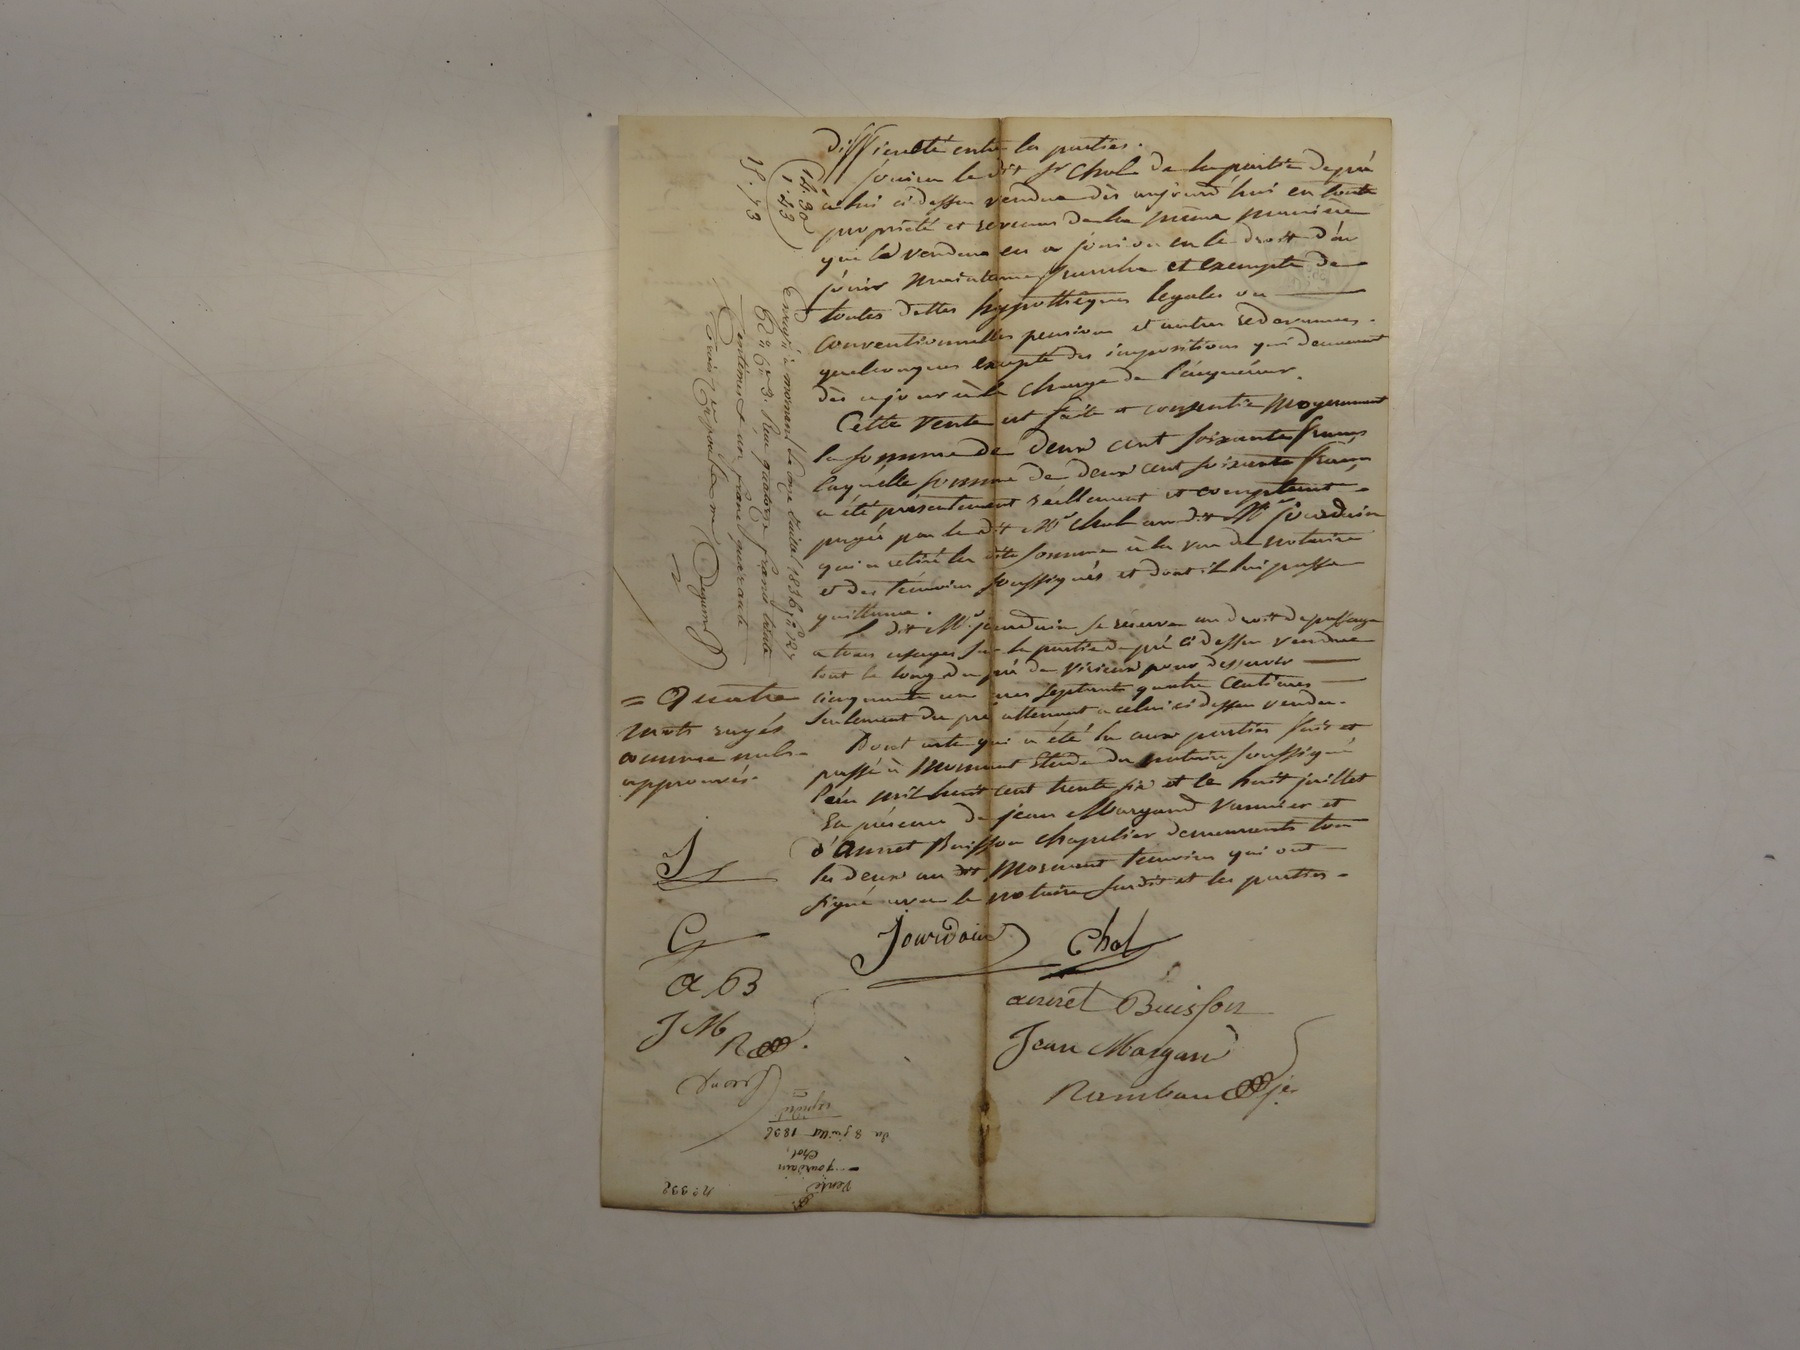 difficulté entre les parties.
Jouira le dit Sr Chol de la partie de pré
à lui ci dessus vendue dès aujourd'hui en toute
propriété et revenus de la même manière
que le vendeur en a joui ou eu le droit d'en
jouir maintenue franche et exempte de
toutes dettes hypothèques legales ou
conventionnelles pensions et autres redevances
quelconques excepté des impositions qui demeurent
dès ce jour à la charge de l'acquéreur.
Cette vente est faite et consentie moyennant
la somme de deux cent soixante francs
laquelle somme de deux cent soixante francs
a été présentement réellement et comptant
payée par le dit Mr Chol au dit Mr jourdain
qui a retiré la dite somme à la vue du notaire
et des témoins soussignés et dont il lui passe
quittance.
Le dit Mr jourdain se réserve un droit de passage
a tous usages sur la partie de pré ci dessus vendue
tout le long du pré de pour desservir
cinquante un ares septante quatre centiares
seulement du pré attenant a celui ci dessus vendu.
Dont acte qui a été lu aux parties fait et
passé à Mornant Etude du notaire soussigné
l'an mil huit cent trente six et le huit juillet
En présence de jean Margand vannier et
d'Annet Buisson chapelier demeurants tous
les deux au dit Mornant témoins qui ont
signé avec le notaire susdit et les parties.
Jourdain Chol
annet Buisson
Jean Margand
Rambaud
= Quatre
mots rayés
comme nuls
approuvés.
J
C
A B
J M
R
14.30
1.43
15.73
Enregistré à mornant le douze Juillet 1836, fo 127
Ro Cse 3. Reçu quatorze francs trente
centimes et un franc quarante
trois cmes pour le
No 332
Vente
jourdain
Chol,
du 8 juillet 1836